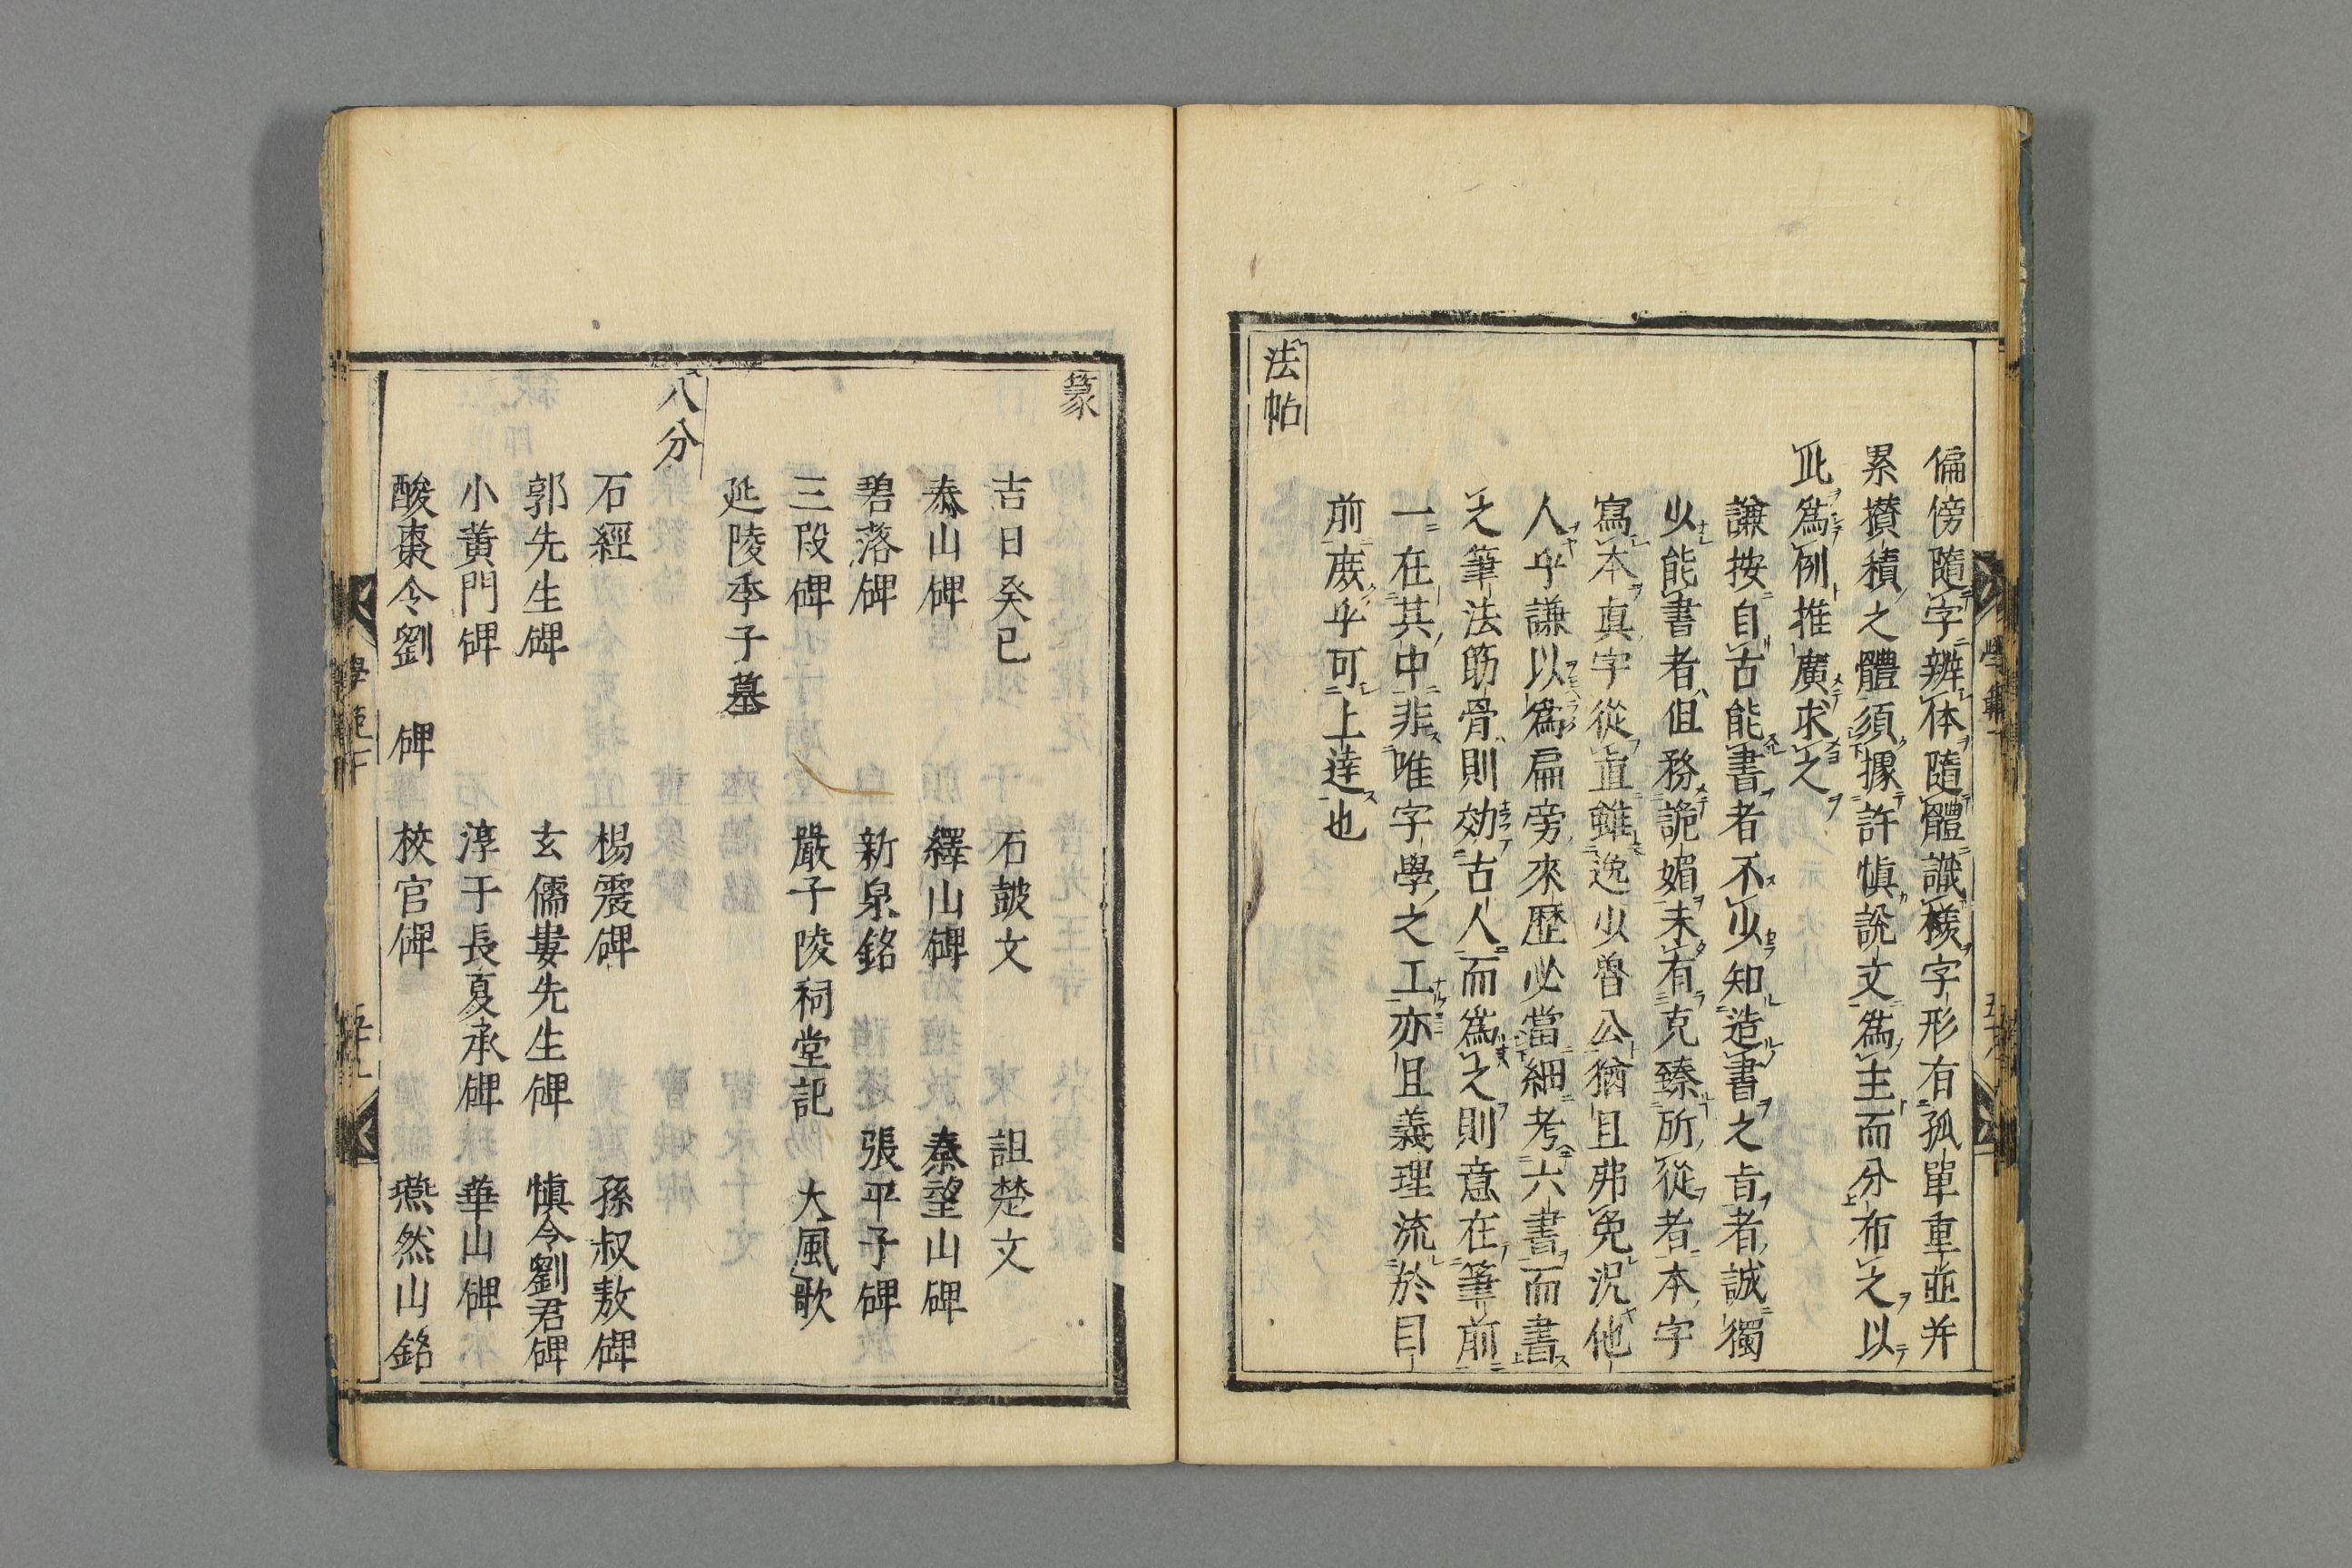 偏傍隨字辨体隨體識様字形有孤單重並并
累攅積之體須據許愼說文爲主而分布之以
此爲例推廣求之
謙按自古能書者不少知造書之旨者誠獨
少能書者但務詭媚未有克臻所從者本字
寫本真字從直雖逸少魯公猶且弗免況他
人乎謙以爲扁旁來歷必當細考六書而書
之筆法筋骨則効古人而爲之則意在筆前
一在其中非唯字學之工亦且義理流於目
前庶乎可上達也
法帖
篆
吉日癸巳 石皷文 詛楚文
泰山碑 繹山碑 秦望山碑
碧落碑 新泉銘 張平子碑
三段碑 嚴子陵祠堂記 大風歌
延陵季子墓
八分
石經 楊震碑 孫叔敖碑
郭先生碑 玄儒婁先生碑 愼令劉君碑
小黄門碑 淳于長夏承碑 華山碑
酸棗令劉 碑 校官碑 燕然山銘